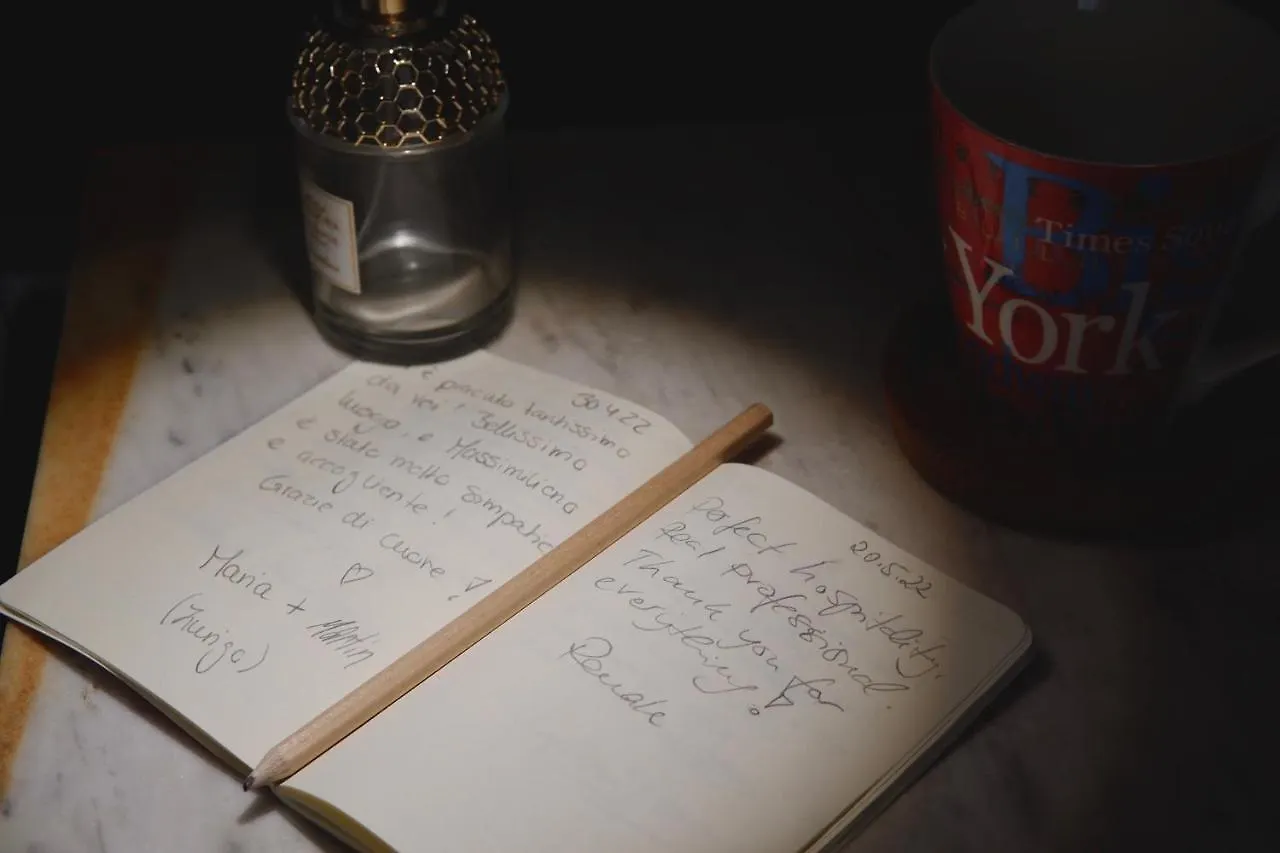 30.4.22
è piaciuto tantissimo
da voi! Bellissimo
luogo, e Massimiliano
è stato molto simpatic
e accogliente!
Grazie di cuore!
♡
Maria + Martin
(Zurigo)
20.5.22
Perfect hospitality.
Real professional.
Thank you for
everything!
Renate
Times Squ
York